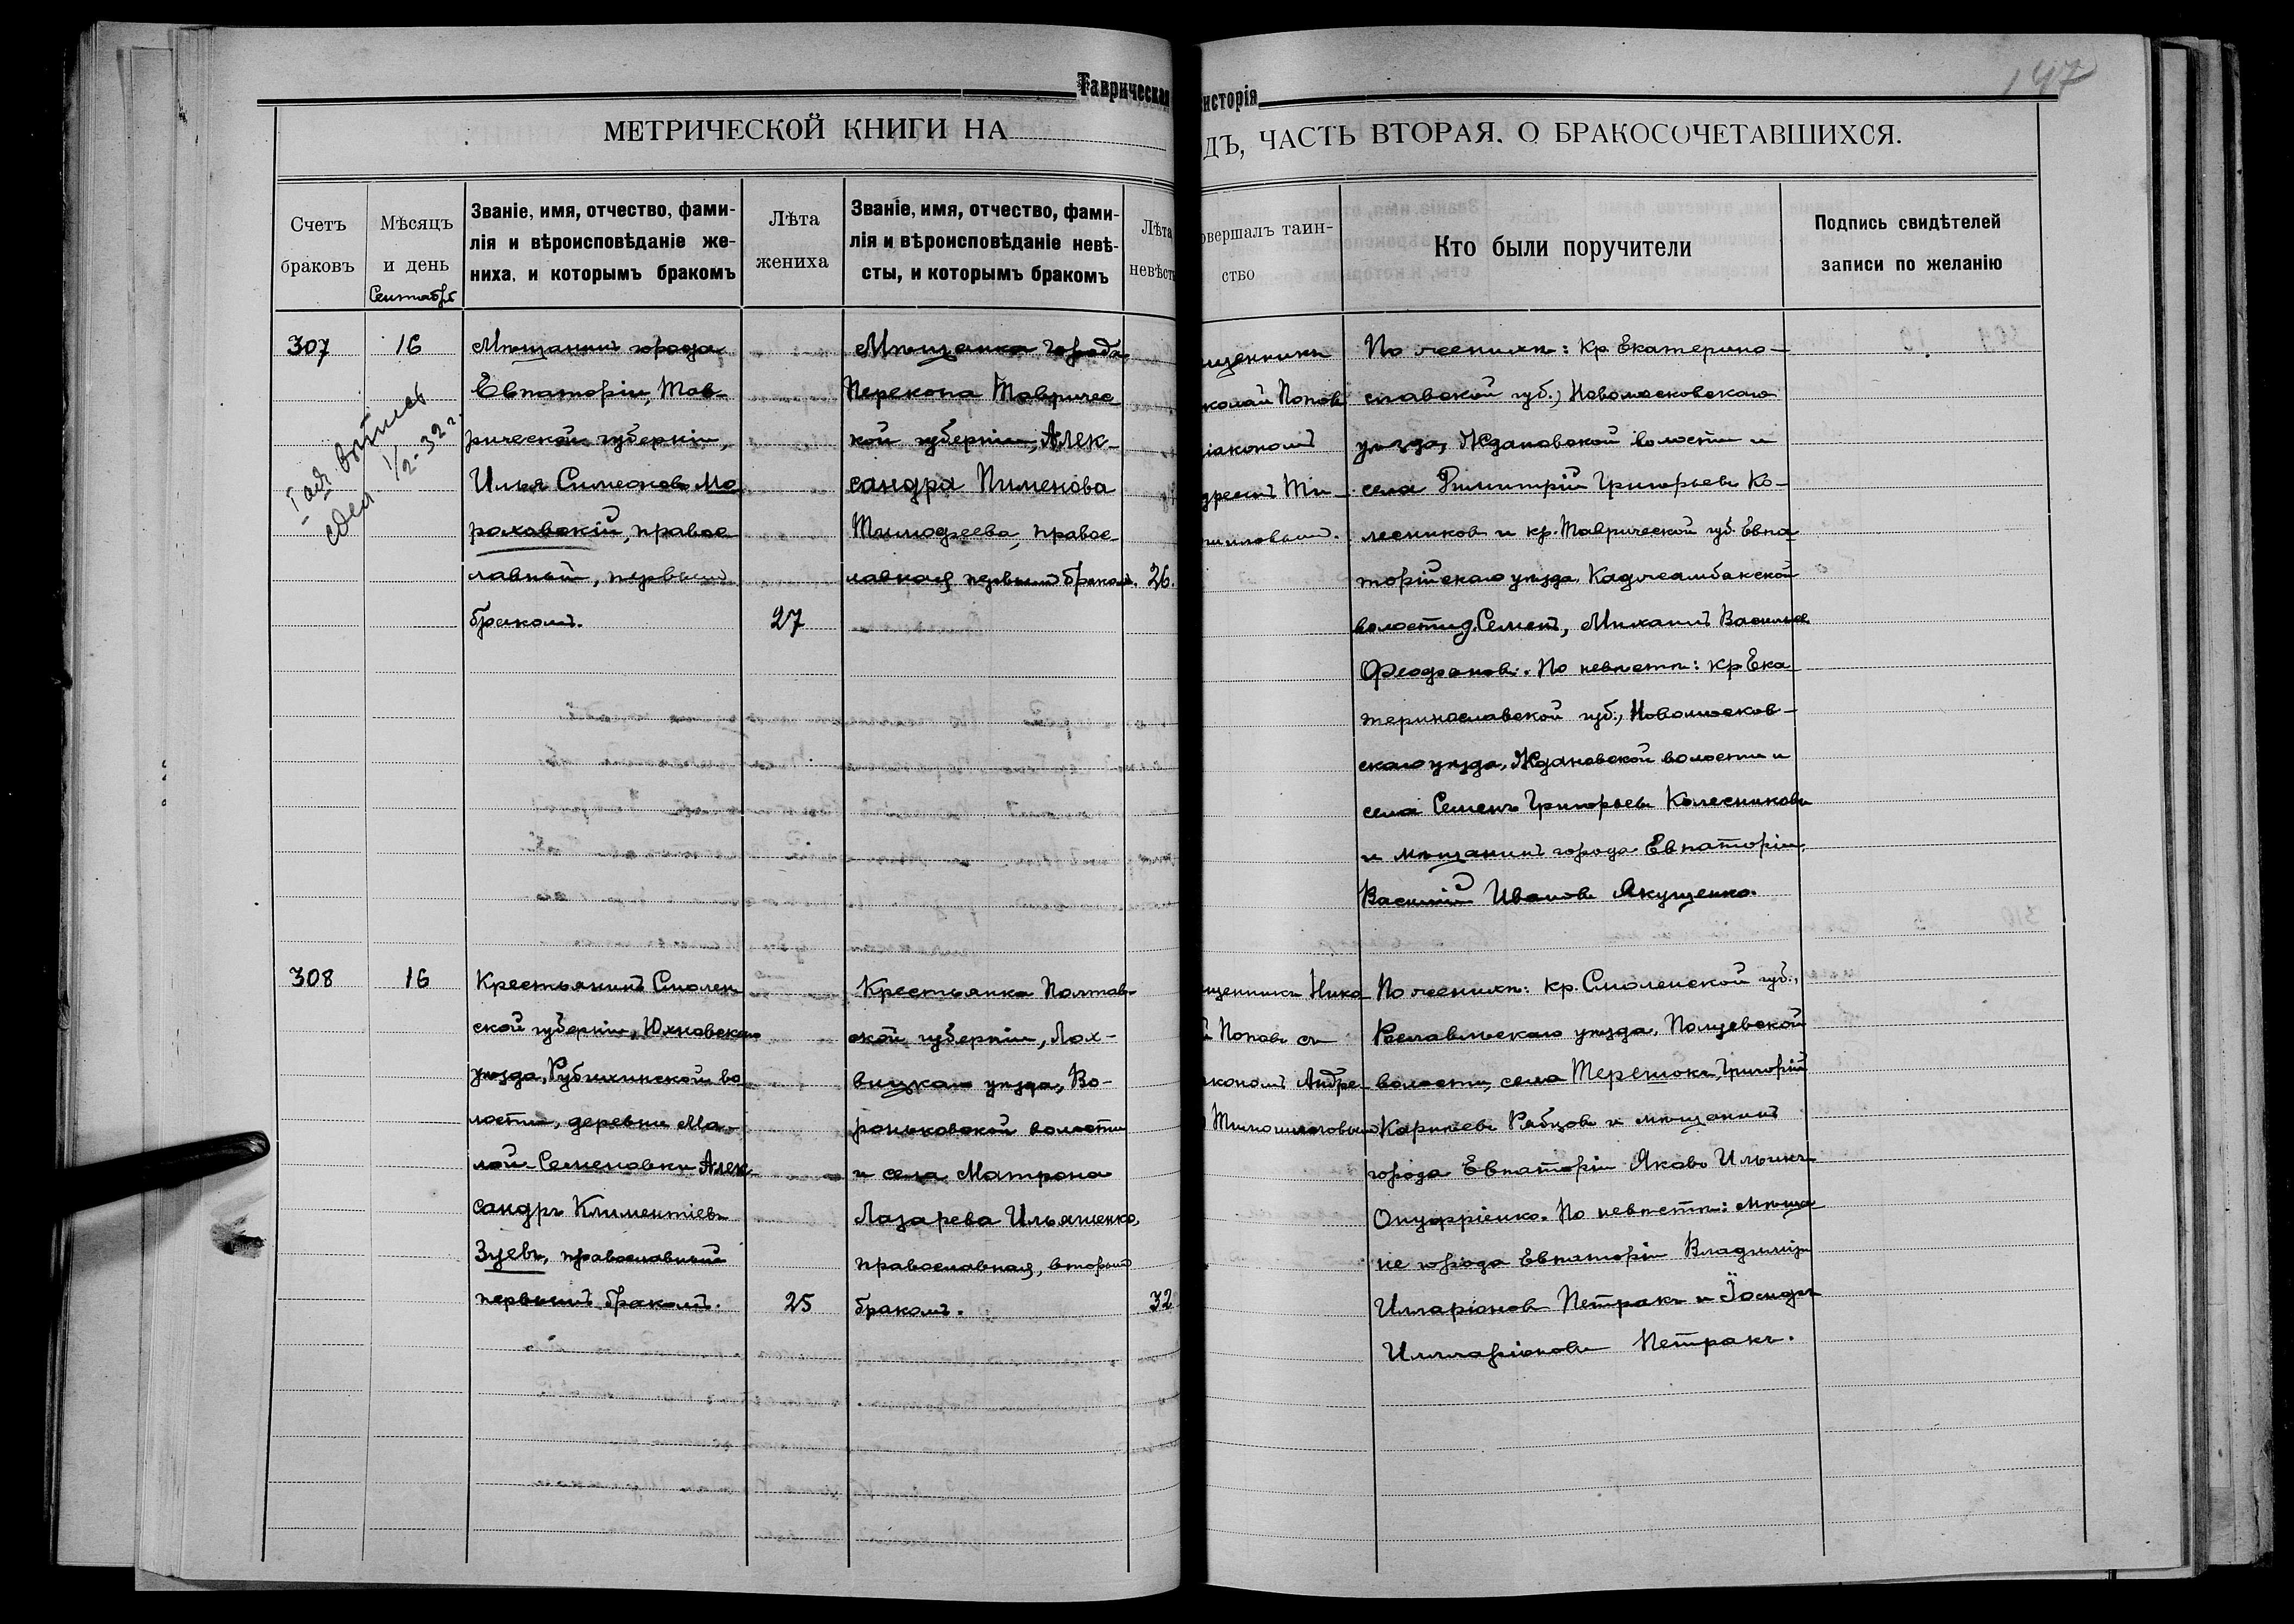 147
Таврическая
исторія
МЕТРИЧЕСКОЙ КНИГИ НА
ДЪ, ЧАСТЬ ВТОРАЯ. О БРАКОСОЧЕТАВШИХСЯ.
Счетъ
браковъ
Мѣсяцъ
и день
Сентябрь
Званіе, имя, отчество, фами-
лія и вѣроисповѣданіе же-
ниха, и которымъ бракомъ
Лѣта
жениха
Званіе, имя, отчество, фами-
лія и вѣроисповѣданіе невѣ-
сты, и которымъ бракомъ
Лѣта
невѣст
овершалъ таин-
ство
Кто были поручители
Подпись свидѣтелей
записи по желанію
307
16
выпись
1/2-32 г.
Мѣщанинъ города
Евпаторіи, Тав-
рической губерніи,
Илья Симеоновъ Мо
роховскій, правос
лавный, первымъ
бракомъ.
27
Мѣщанка города
Перекопа Тавричес
кой губерніи, Алек-
сандра Пименова
Тимофеева, правос
лавная, первымъ бракомъ.
26.
щенникъ
колай Поповъ
іакономъ
дреемъ Ти-
шиловымъ.
По женихѣ: кр. Екатерино-
славской губ., Новомосковскаго
уѣзда, Ждановской волости и
села Димитрій Григорьевъ Ко-
лесниковъ и кр. Таврической губ. Евпа
торійскаго уѣзда, Каджамбакской
волости д. Семенъ, Михаилъ Васильевъ
Феофановъ. По невѣстѣ: кр. Ека
теринославской губ., Новомосков-
скаго уѣзда, Ждановской волости и
села Семенъ Григорьевъ Колесниковъ
и мѣщанинъ города Евпаторіи,
Василій Ивановъ Якущенко.
308
16
Крестьянинъ Смолен
ской губерніи, Юхновскаго
уѣзда, Рубихинской во
лости, деревни Ма-
лой-Семеновки Алек
сандръ Климентіевъ
Зуевъ, православный
первымъ бракомъ.
25
Крестьянка Полтав
ской губерніи, Лох-
вицкаго уѣзда, Во-
роньковской волости
и села Матрона
Лазарева Ильяшенко,
православная, вторымъ
бракомъ.
32
щенникъ Нико
й Поповъ съ
кономъ Андре-
По женихѣ: кр. Смоленской губ.,
Рославльскаго уѣзда, Полуевской
волости, села Терешокъ, Григорій
Карпѣевъ Рябцовъ и мѣщанинъ
города Евпаторіи Яковъ Ильинъ
Онуфріенко. По невѣстѣ: мѣща
не города Евпаторіи Владиміръ
Илларіоновъ Петракъ и Іосифъ
Илларіоновъ Петракъ.